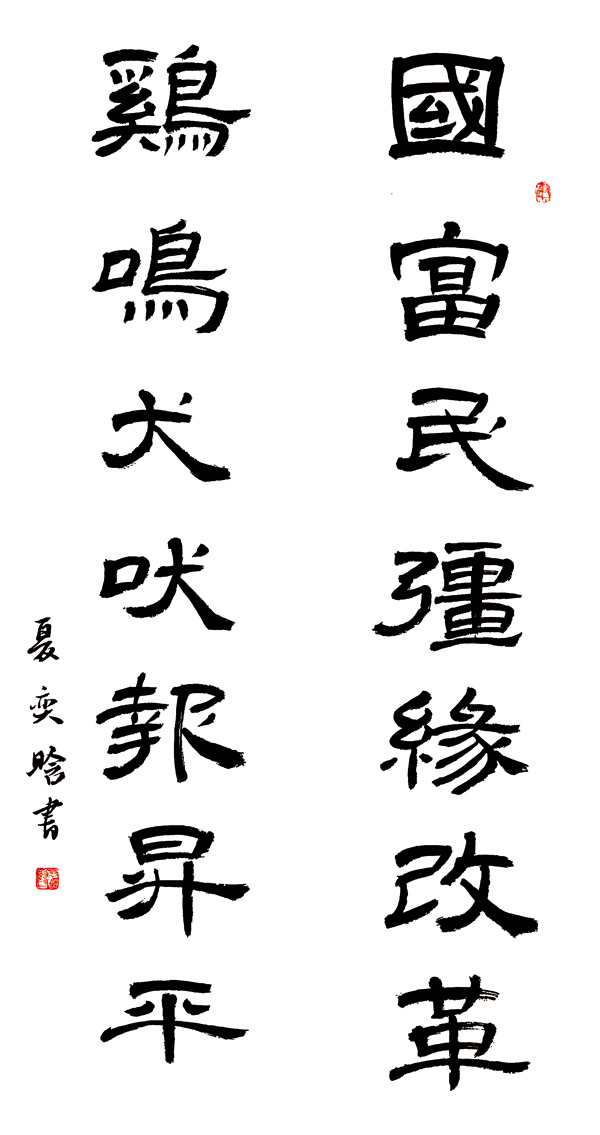 國富民彊緣改革
鷄鳴犬吠報昇平
夏奕晗書